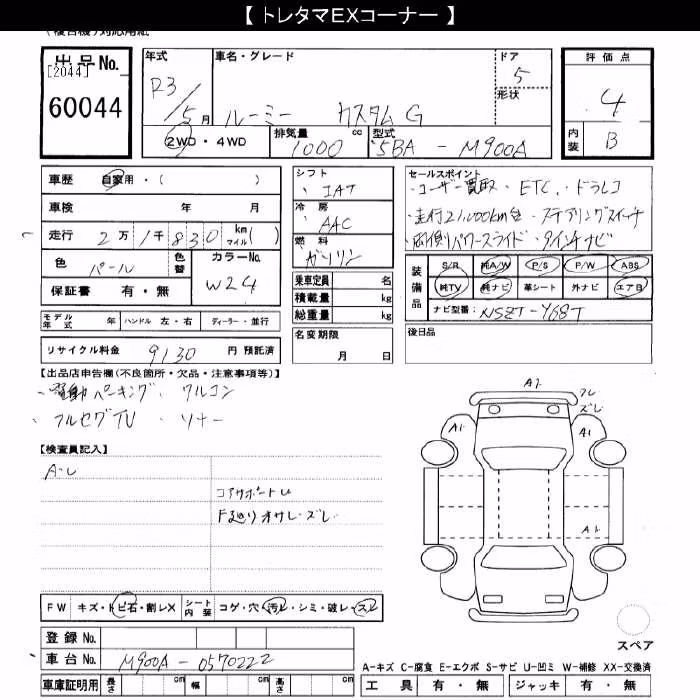 【 トレタマEXコーナー 】
出品No.
[2044]
60044
年式
R3/5月
車名・グレード
ルーミー カスタムG
ドア
5
形状
2WD・4WD
排気量
1000 cc
型式
5BA - M900A
評価点
4
内装
B
車歴 自家用・( )
車検 年 月
走行 2万 1千 830 km マイル( )
色
パール
色替
カラーNo.
W24
保証書 有・無
モデル年式 年 ハンドル 左・右 ディーラー・並行
リサイクル料金 9130 円 預託済
シフト
IAT
冷房
AAC
燃料
ガソリン
乗車定員 名
積載量 kg
総重量 kg
名変期限
月 日
セールスポイント
・ユーザー買取・ETC・ドラレコ
・走行21,000km台・ステアリングスイッチ
・両側パワースライド・9インチナビ
装備品
S/R 純A/W P/S P/W ABS
純TV 純ナビ 革シート 外ナビ エアB
ナビ型番: NSZT-Y68T
後日品
【出品店申告欄(不良箇所・欠品・注意事項等)】
・電動パーキング・クルコン
・フルセグTV・ソナー
【検査員記入】
A・U
コアサポートU
F廻りオサレ・ズレ
FW キズ・トビ石・割レX シート内装 コゲ・穴・汚レ・シミ・破レ・スレ
登録No.
車台No. M900A-0570222
車庫証明用 長さ cm 幅 cm 高さ cm
A1
フレ
ズレ
A1
A1
A1
スペア
A-キズ C-腐食 E-エクボ S-サビ U-凹ミ W-補修 XX-交換済
工具 有・無 ジャッキ 有・無